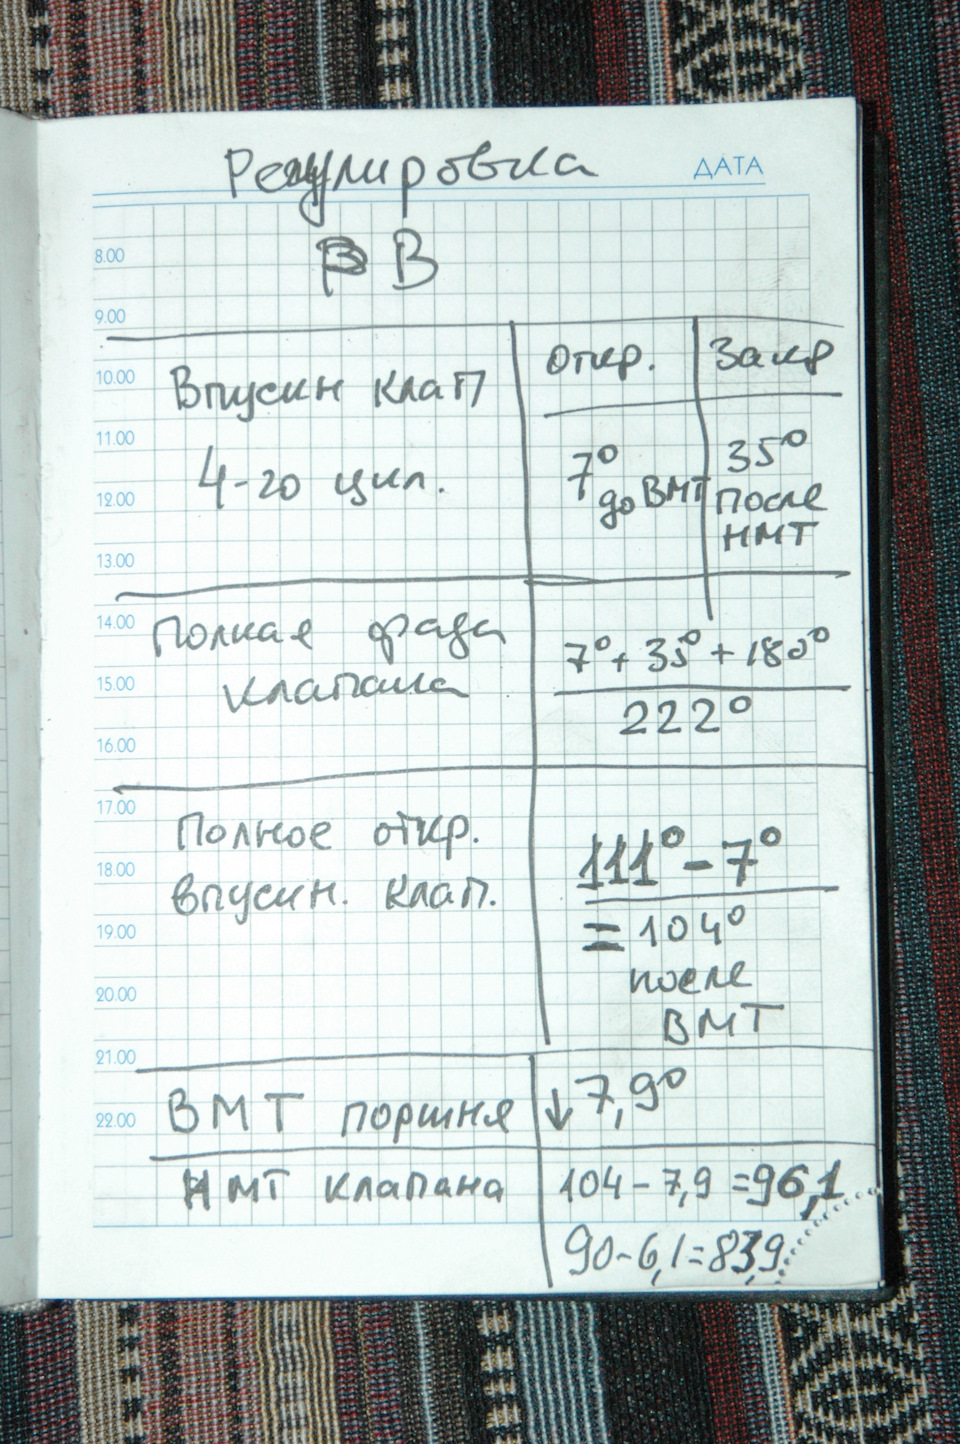 Регулировка
ДАТА
РВ В
8.00
9.00
10.00
11.00
12.00
13.00
14.00
15.00
16.00
17.00
18.00
19.00
20.00
21.00
22.00
Впускн клап
4-го цил.
откр.
Закр
7°
до ВМТ
35°
После
НМТ
Полная фаза
клапана
7°+35°+180°
222°
Полное откр.
впускн. клап.
111°-7°
=104°
после
ВМТ
ВМТ поршня
↓7,9°
НМТ клапана
104-7,9=96,1
90-6,1=83,9